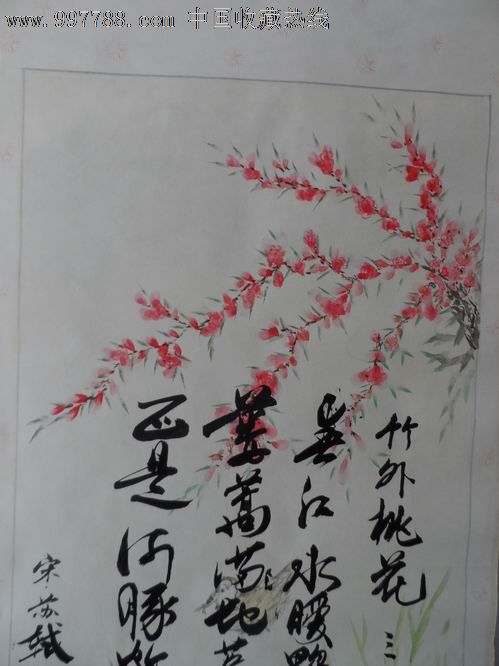 www.997788.com 中国收藏热线
竹外桃花三
春江水暖鸭
蒌蒿满地芦
正是河豚欲
宋·苏轼